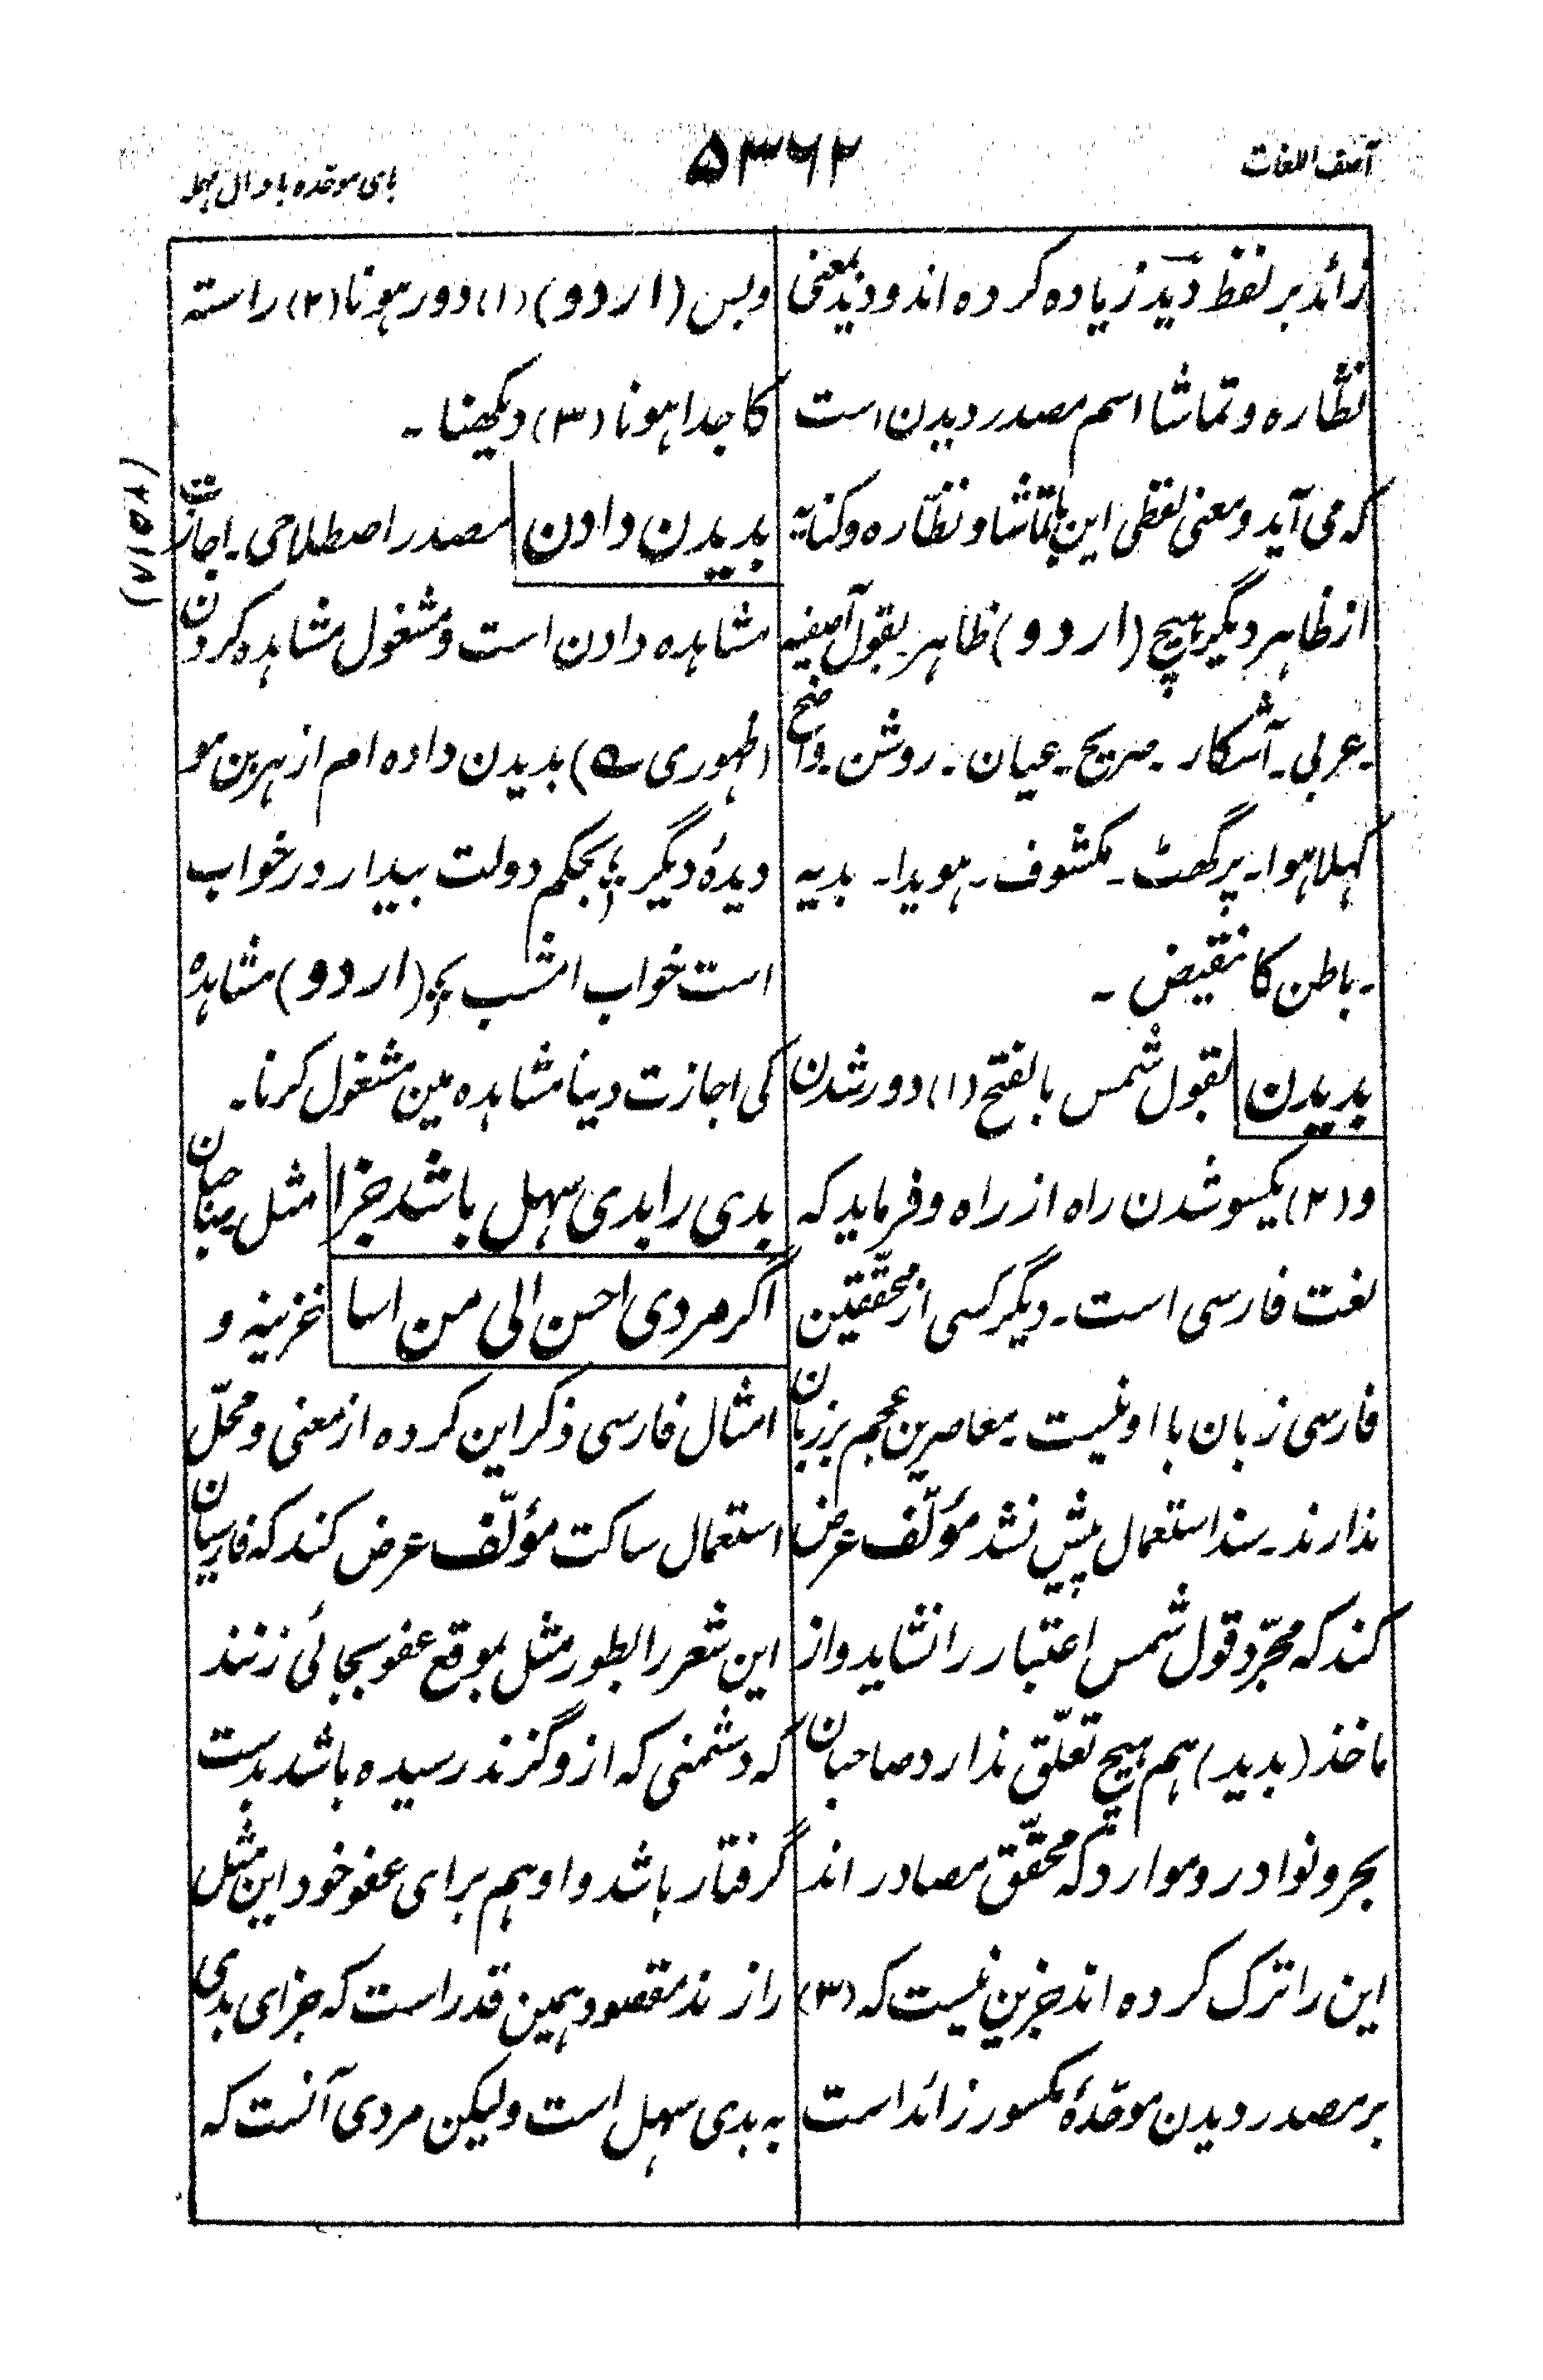 آصف اللغات
۵۳۶۲
بای موحّده با دال مہملہ
زائد بر لفظ دید زیادہ کردہ اند و دید بمعنی
نظّارہ و تماشا اسم مصدر دیدن است
کہ می آید و معنی لفظی این بتماشا و نظّارہ و کنایہ
از ظاہر دیگر ہیچ (اردو) ظاہر بقول آصفیہ
۔عربی۔ آشکار۔ صریح۔ عیان۔ روشن۔ واضح
کہلا ہوا۔ پرگھٹ۔ مکشوف۔ ہویدا۔ بدیہ
۔باطن کا نقیض۔
بدیدن بقول شمس بالفتح (۱) دور شدن
و (۲) یکسو شدن راہ از راہ و فرماید کہ
لغت فارسی است۔ دیگر کسی از محقّقین
فارسی زبان با او نیست۔ معاصرین عجم بر زبان
ندارند۔ سند استعمال پیش نشد مؤلّف عرض
کند کہ مجرّد قول شمس اعتبار را نشاید و از
ماخذ (بدید) ہم ہیچ تعلّق ندارد صاحبان
بحر و نوادر و موارد کہ محقّق مصادر اند
این را ترک کردہ اند جزین نیست کہ (۳)
بر مصدر دیدن موحّدۂ مکسور زائد است
و بس (اردو) (۱) دور ہونا (۲) راستہ
کا جدا ہونا (۳) دیکھنا۔
بدیدن دادن مصدر اصطلاحی۔ اجازت
مشاہدہ دادن است و مشغول مشاہدہ کردن
(ظہوری ؎) بدیدن دادہ ام از ہر بن مو
دیدۂ دیگر ؛ بحکم دولت بیدار در خواب
است خواب امشب ؛ (اردو) مشاہدہ
کی اجازت دینا مشاہدہ مین مشغول کرنا۔
بدی را بدی سہل باشد جزا مثل۔ صاحبان
اگر مردی احسن الی من اسا خزینہ و
امثال فارسی ذکر این کردہ از معنی و محلّ
استعمال ساکت مؤلّف عرض کند کہ فارسیان
این شعر را بطور مثل بموقع عفو بجائی زنند
کہ دشمنی کہ ازو گزند رسیدہ باشد بدست
گرفتار باشد و او ہم برای عفو خود این مثل
را زند مقصود ہمین قدر است کہ جزای بدی
بہ بدی سہل است ولیکن مردی آنست کہ
(۲۵۱۸)